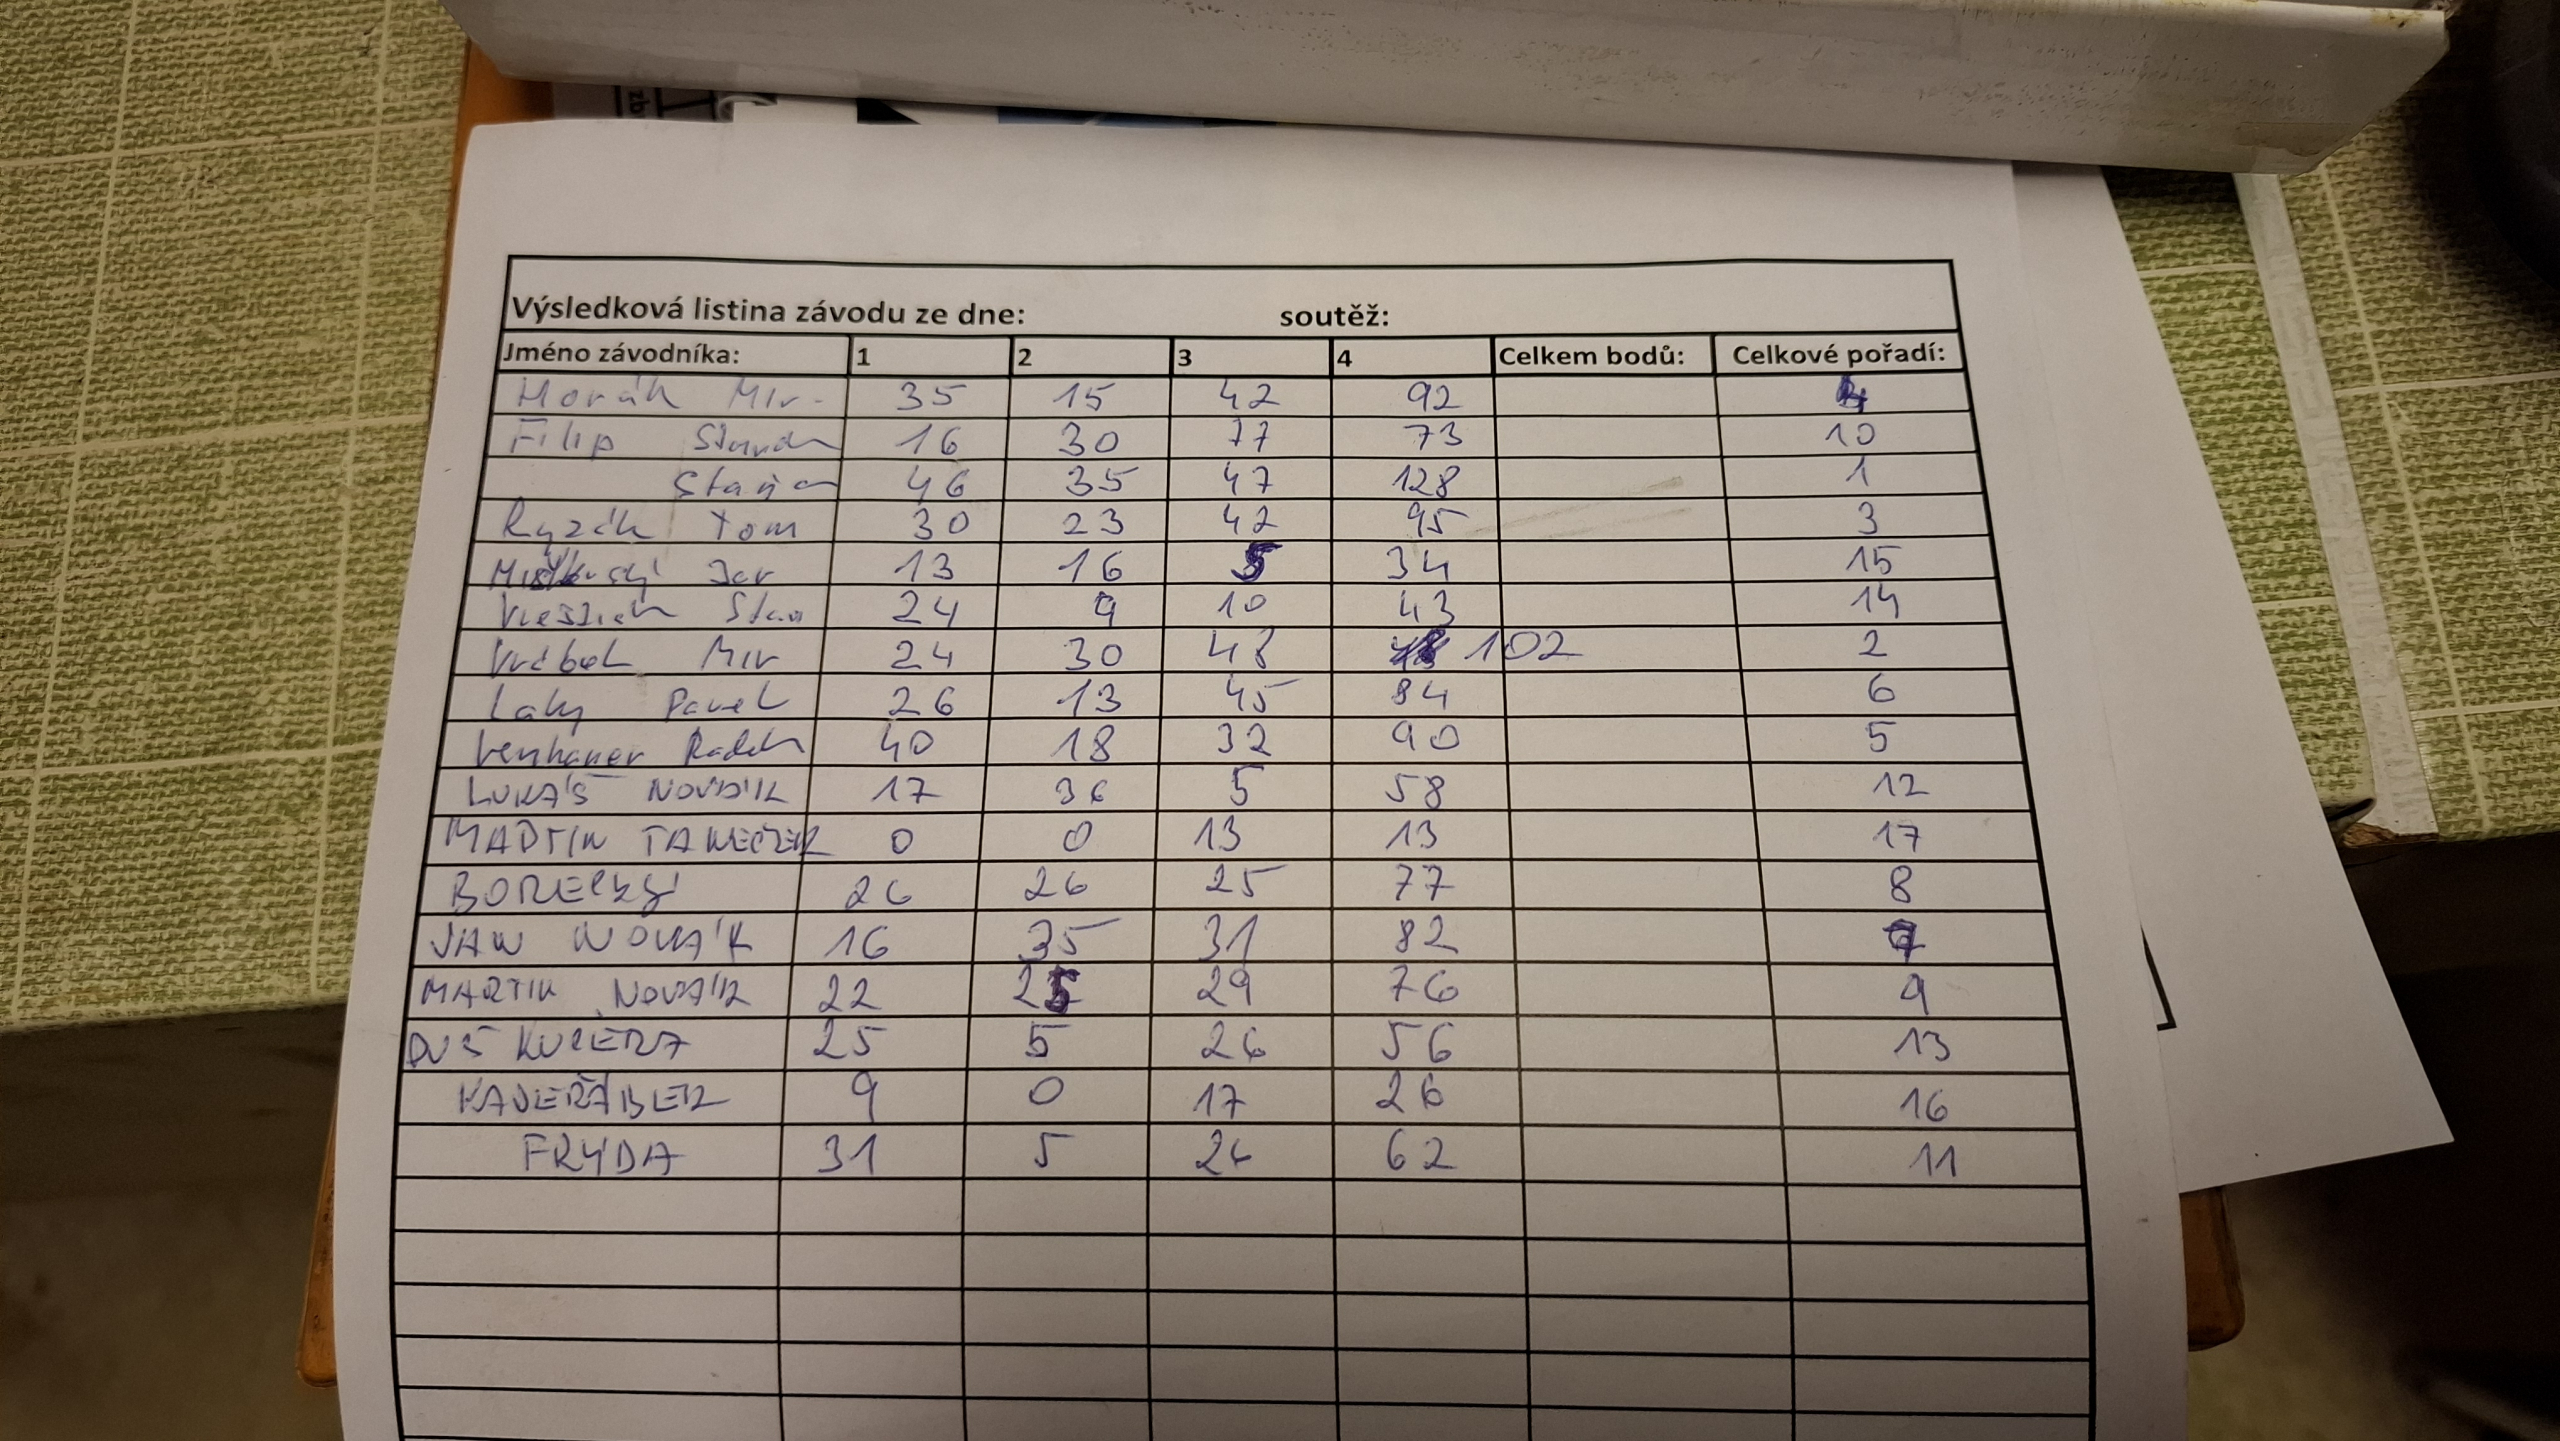 Výsledková listina závodu ze dne: soutěž:
Jméno závodníka: 1 2 3 4 Celkem bodů: Celkové pořadí:
Horák Mir. 35 15 42 92 4
Filip Standa 16 30 77 73 10
46 35 47 128 1
Ryzák Tom 30 23 42 95 3
Jar 13 16 5 34 15
Stan 24 9 10 43 14
Vrábel Mir 24 30 48 102 2
Laky Pavel 26 13 45 84 6
Radek 40 18 32 90 5
LUKÁŠ NOVÁK 17 36 5 58 12
MARTIN 0 0 13 13 17
BORECKÝ 26 26 25 77 8
JAN NOVÁK 16 35 31 82 7
MARTIN NOVÁK 22 25 29 76 9
DUŠ KUČERA 25 5 26 56 13
KADEŘÁBEK 9 0 17 26 16
FRÝDA 31 5 26 62 11